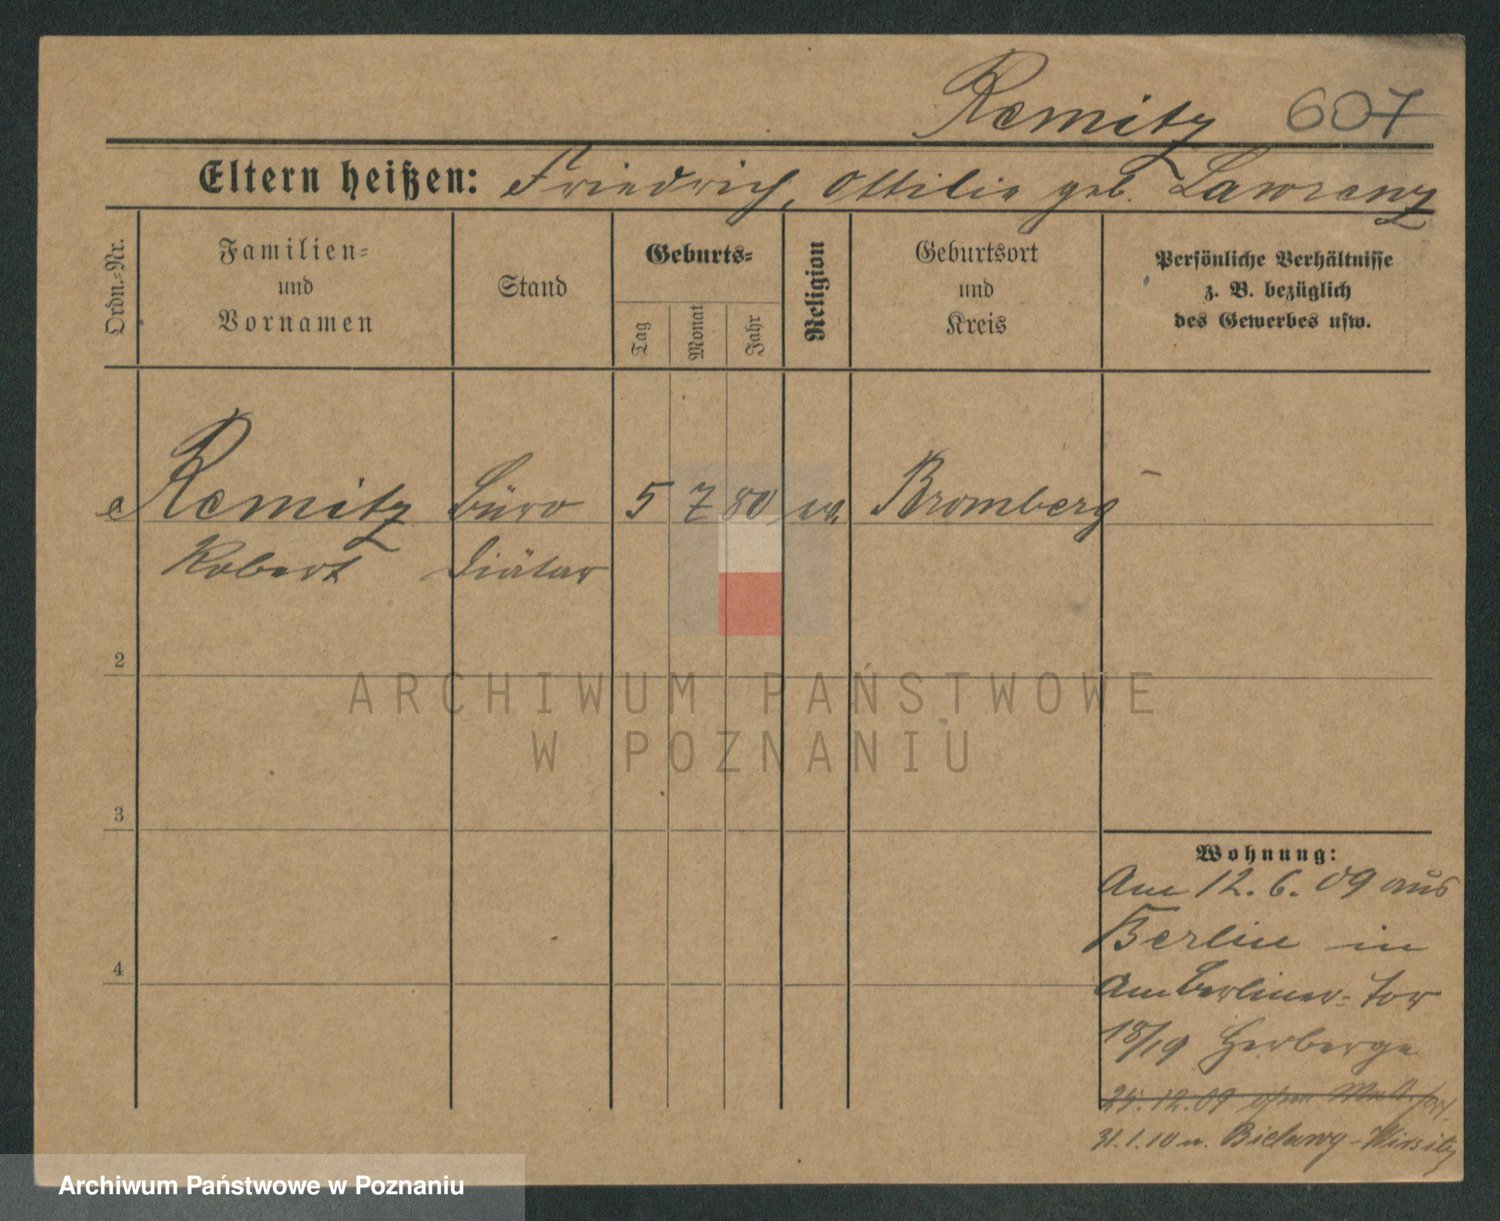 Remitz 607
Eltern heißen: Friedrich, Ottilie geb. Lawrenz
Ordn.-Nr.
Familien-
und
Vornamen
Stand
Geburts-
Tag
Monat
Jahr
Religion
Geburtsort
und
Kreis
Persönliche Verhältnisse
z. B. bezüglich
des Gewerbes usw.
Remitz Büro 5 7 80 ev. Bromberg
Robert Diätar
2
ARCHIWUM PAŃSTWOWE
W POZNANIU
3
4
Wohnung:
Am 12. 6. 09 aus
Berlin in
Am Berliner-Tor
18/19 Herberge
24. 12. 09 ohne
31. 1. 10 n. Bielawy-Wirsitz
Archiwum Państwowe w Poznaniu